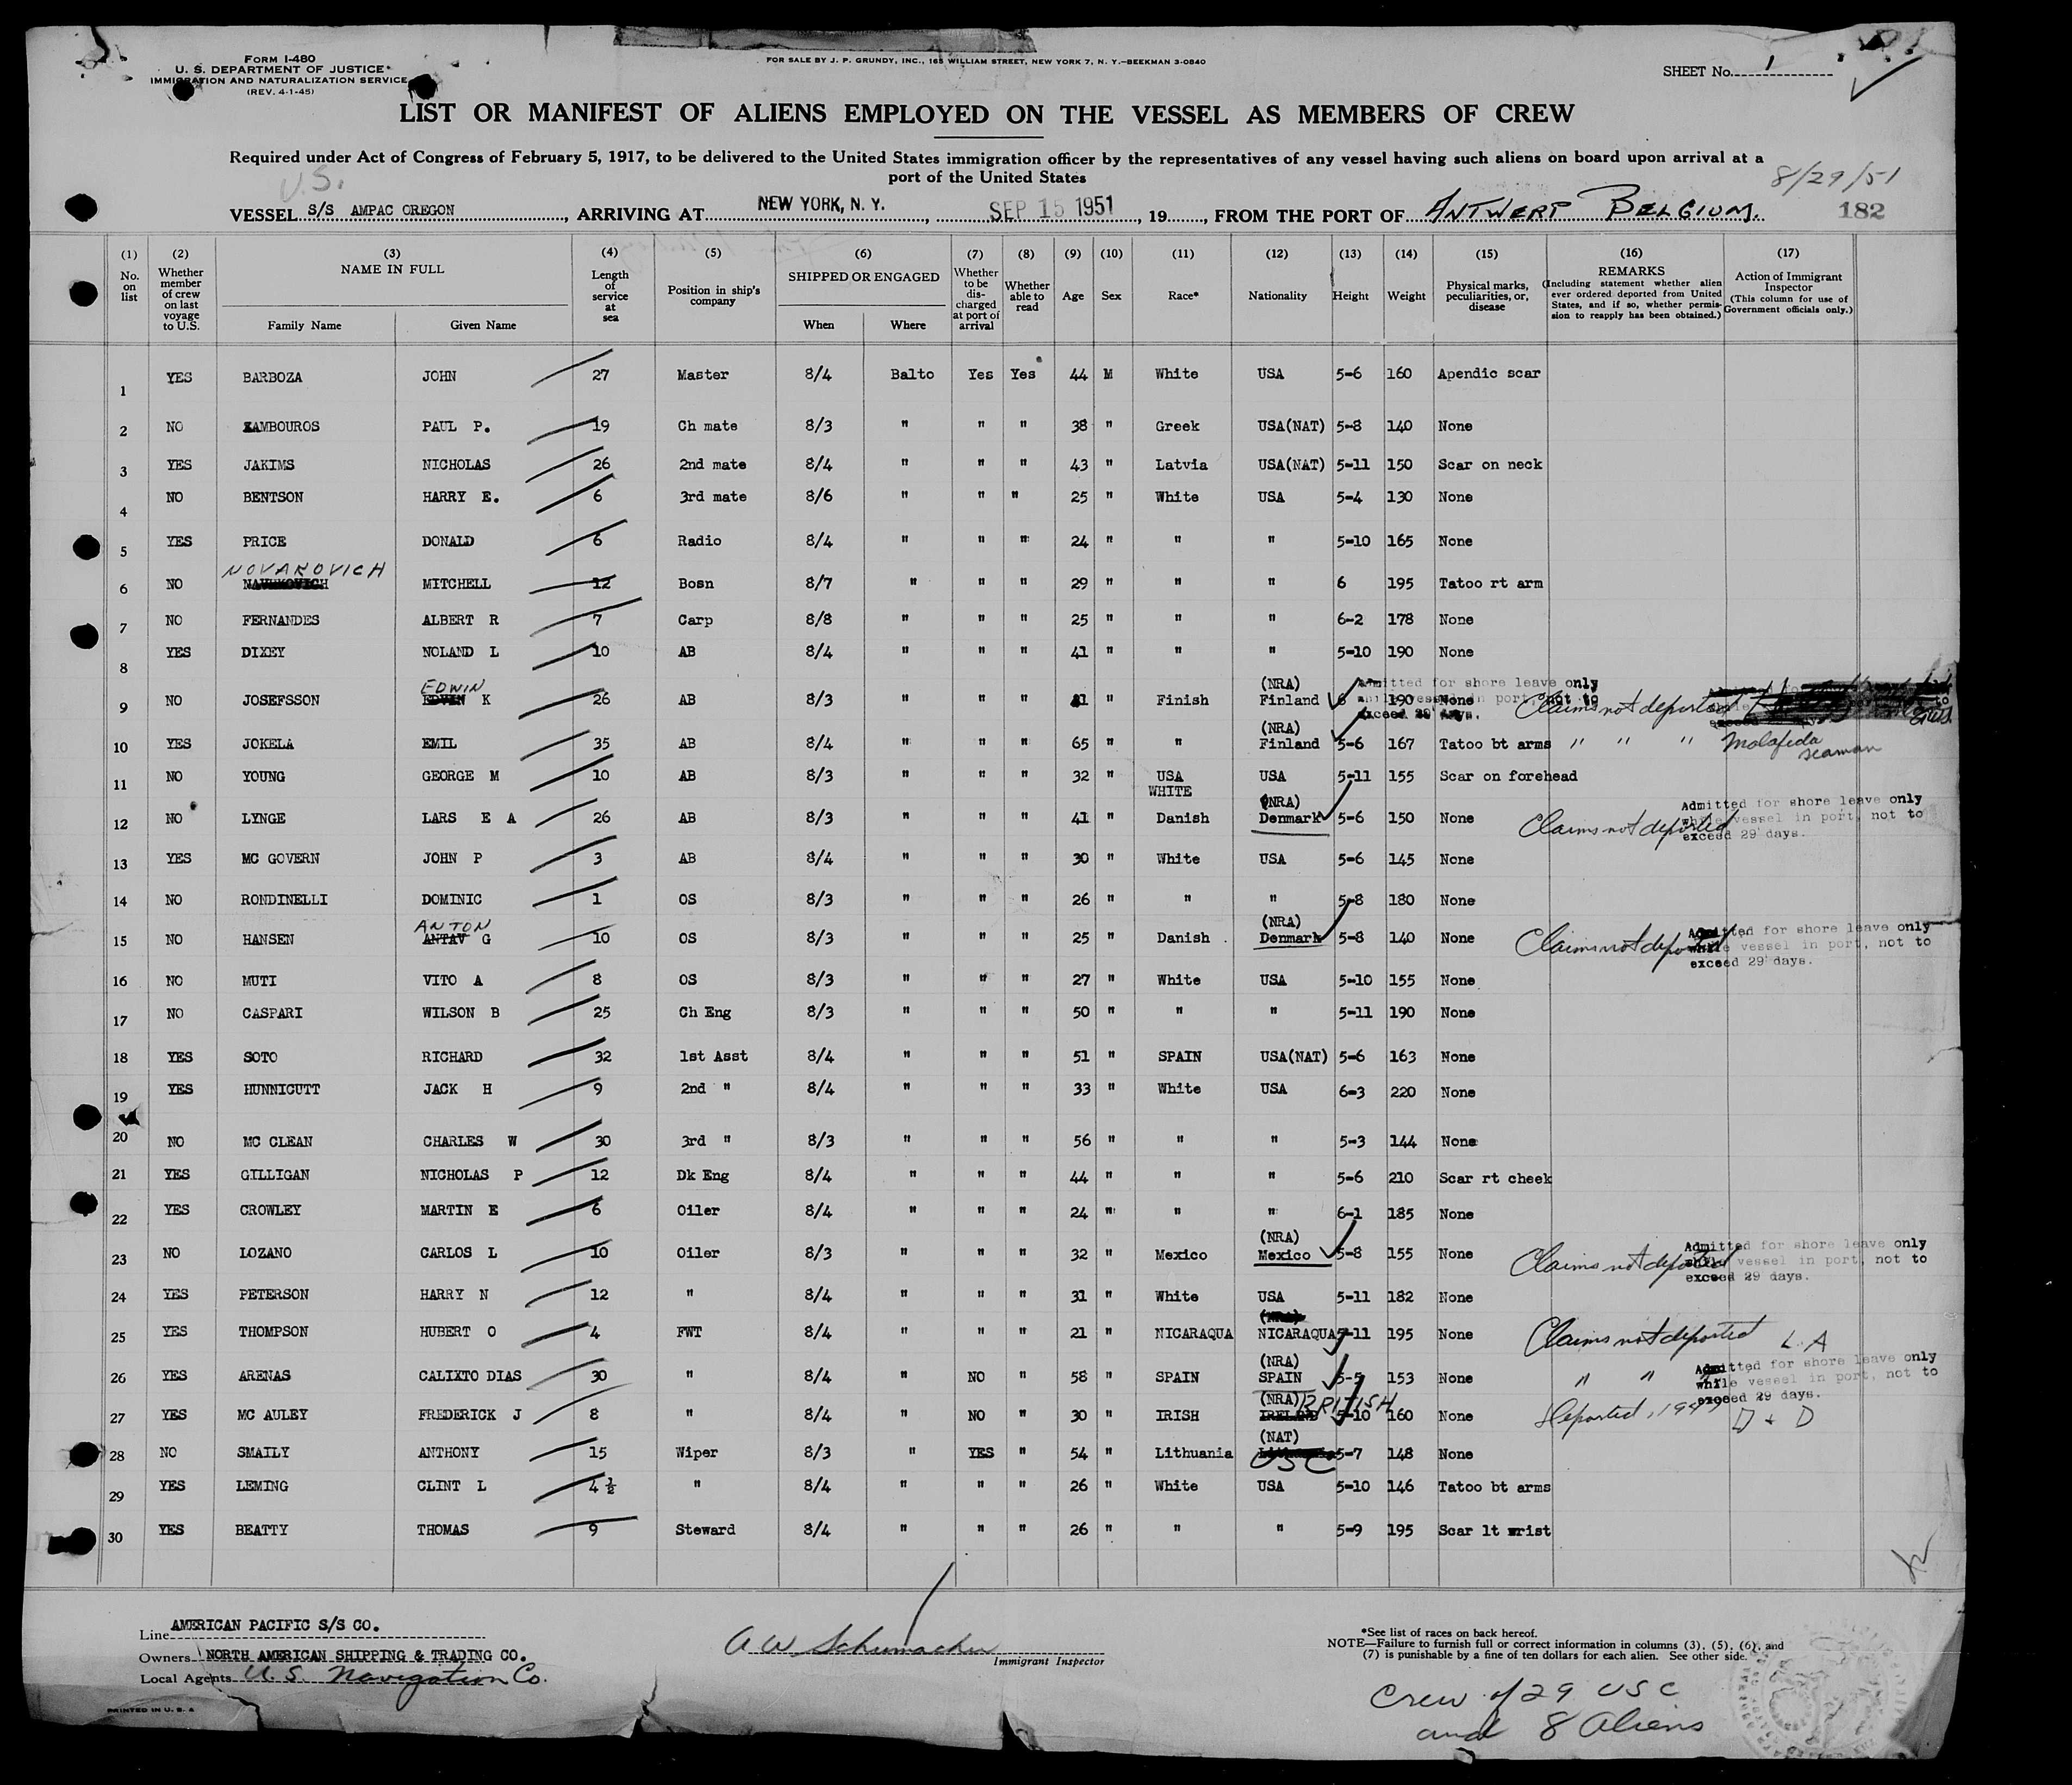 FORM I-480
U. S. DEPARTMENT OF JUSTICE
IMMIGRATION AND NATURALIZATION SERVICE
(REV. 4-1-45)
FOR SALE BY J. P. GRUNDY, INC., 165 WILLIAM STREET, NEW YORK 7, N. Y.—BEEKMAN 3-0840
SHEET No. 1
LIST OR MANIFEST OF ALIENS EMPLOYED ON THE VESSEL AS MEMBERS OF CREW
Required under Act of Congress of February 5, 1917, to be delivered to the United States immigration officer by the representatives of any vessel having such aliens on board upon arrival at a
port of the United States
U.S.
8/29/51
VESSEL S/S AMPAC OREGON, ARRIVING AT NEW YORK, N. Y., SEP 15 1951, 19, FROM THE PORT OF ANTWERP BELGIUM. 182
(1) No. on list (2) Whether member of crew on last voyage to U.S. (3) NAME IN FULL Family Name Given Name (4) Length of service at sea (5) Position in ship's company (6) SHIPPED OR ENGAGED When Where (7) Whether to be discharged at port of arrival (8) Whether able to read (9) Age (10) Sex (11) Race* (12) Nationality (13) Height (14) Weight (15) Physical marks, peculiarities, or, disease (16) REMARKS (Including statement whether alien ever ordered deported from United States, and if so, whether permission to reapply has been obtained.) (17) Action of Immigrant Inspector (This column for use of Government officials only.)
1 YES BARBOZA JOHN 27 Master 8/4 Balto Yes Yes 44 M White USA 5-6 160 Apendic scar
2 NO XAMBOUROS PAUL P. 19 Ch mate 8/3 " " " 38 " Greek USA(NAT) 5-8 140 None
3 YES JAKIMS NICHOLAS 26 2nd mate 8/4 " " " 43 " Latvia USA(NAT) 5-11 150 Scar on neck
4 NO BENTSON HARRY E. 6 3rd mate 8/6 " " " 25 " White USA 5-4 130 None
5 YES PRICE DONALD 6 Radio 8/4 " " " 24 " " " 5-10 165 None
6 NO NOVAKOVICH MITCHELL 12 Bosn 8/7 " " " 29 " " " 6 195 Tatoo rt arm
7 NO FERNANDES ALBERT R 7 Carp 8/8 " " " 25 " " " 6-2 178 None
8 YES DIXEY NOLAND L 10 AB 8/4 " " " 41 " " " 5-10 190 None
9 NO JOSEFSSON EDWIN K 26 AB 8/3 " " " 41 " Finish (NRA) Finland 6 190 None Admitted for shore leave only while vessel in port, not to exceed 29 days. Claims not deported
10 YES JOKELA EMIL 35 AB 8/4 " " " 65 " " (NRA) Finland 5-6 167 Tatoo bt arms " " " Malafida seaman
11 NO YOUNG GEORGE M 10 AB 8/3 " " " 32 " USA WHITE USA 5-11 155 Scar on forehead
12 NO LYNGE LARS E A 26 AB 8/3 " " " 41 " Danish (NRA) Denmark 5-6 150 None Claims not deported Admitted for shore leave only while vessel in port, not to exceed 29 days.
13 YES MC GOVERN JOHN P 3 AB 8/4 " " " 30 " White USA 5-6 145 None
14 NO RONDINELLI DOMINIC 1 OS 8/3 " " " 26 " " " 5-8 180 None
15 NO HANSEN ANTON ANTAV G 10 OS 8/3 " " " 25 " Danish (NRA) Denmark 5-8 140 None Claims not deported Admitted for shore leave only while vessel in port, not to exceed 29 days.
16 NO MUTI VITO A 8 OS 8/3 " " " 27 " White USA 5-10 155 None
17 NO CASPARI WILSON B 25 Ch Eng 8/3 " " " 50 " " " 5-11 190 None
18 YES SOTO RICHARD 32 1st Asst 8/4 " " " 51 " SPAIN USA(NAT) 5-6 163 None
19 YES HUNNICUTT JACK H 9 2nd " 8/4 " " " 33 " White USA 6-3 220 None
20 NO MC CLEAN CHARLES W 30 3rd " 8/3 " " " 56 " " " 5-3 144 None
21 YES GILLIGAN NICHOLAS P 12 Dk Eng 8/4 " " " 44 " " " 5-6 210 Scar rt cheek
22 YES CROWLEY MARTIN E 6 Oiler 8/4 " " " 24 " " " 6-1 185 None
23 NO LOZANO CARLOS L 10 Oiler 8/3 " " " 32 " Mexico (NRA) Mexico 5-8 155 None Claims not deported Admitted for shore leave only while vessel in port, not to exceed 29 days.
24 YES PETERSON HARRY N 12 " 8/4 " " " 31 " White USA 5-11 182 None
25 YES THOMPSON HUBERT O 4 FWT 8/4 " " " 21 " NICARAQUA (NRA) NICARAQUA 5-11 195 None Claims not deported L.A
26 YES ARENAS CALIXTO DIAS 30 " 8/4 " NO " 58 " SPAIN (NRA) SPAIN 5-5 153 None " " " Admitted for shore leave only while vessel in port, not to exceed 29 days.
27 YES MC AULEY FREDERICK J 8 " 8/4 " NO " 30 " IRISH (NRA) BRITISH IRELND 5-10 160 None Deported, D + D
28 NO SMAILY ANTHONY 15 Wiper 8/3 " YES " 54 " Lithuania (NAT) USC 5-7 148 None
29 YES LEMING CLINT L 4 ½ " 8/4 " " " 26 " White USA 5-10 146 Tatoo bt arms
30 YES BEATTY THOMAS 9 Steward 8/4 " " " 26 " " " 5-9 195 Scar lt wrist
Line AMERICAN PACIFIC S/S CO.
Owners NORTH AMERICAN SHIPPING & TRADING CO.
Local Agents U.S. Navigation Co.
PRINTED IN U. S. A
A W Schumacher
Immigrant Inspector
*See list of races on back hereof.
NOTE—Failure to furnish full or correct information in columns (3), (5), (6), and
(7) is punishable by a fine of ten dollars for each alien. See other side.
Crew of 29 USC
and 8 Aliens